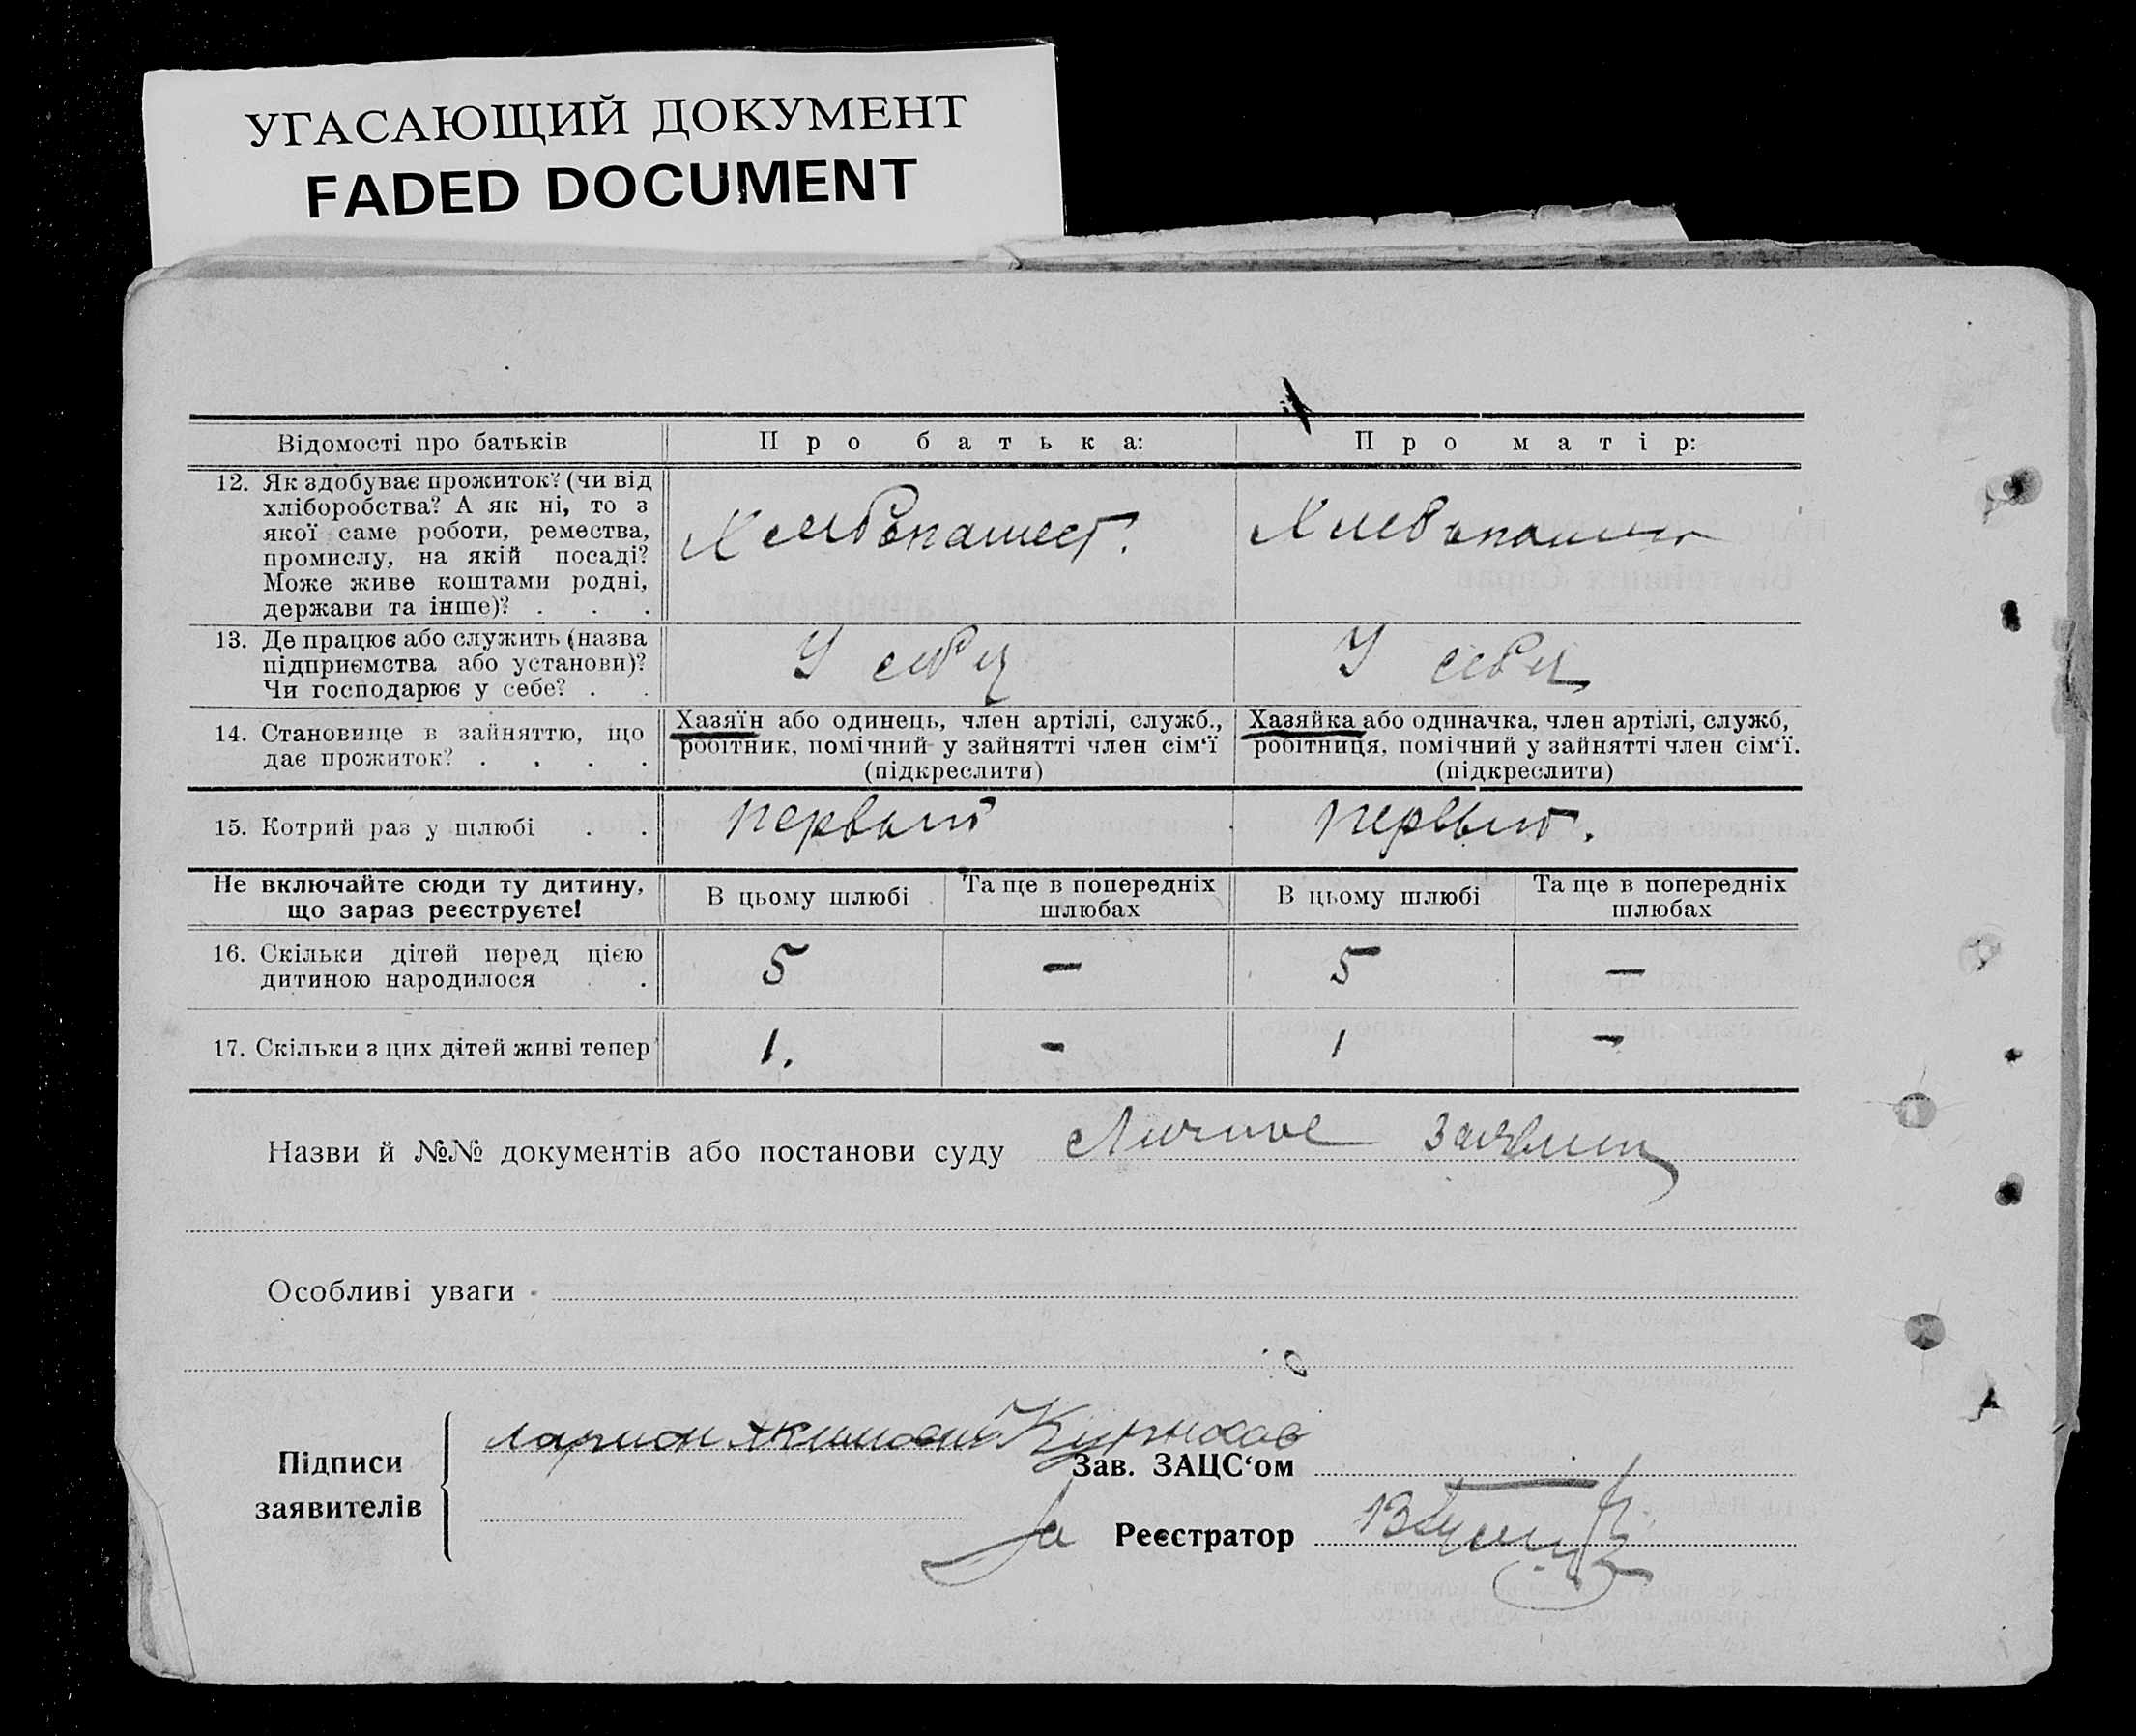 УГАСАЮЩИЙ ДОКУМЕНТ
FADED DOCUMENT
Відомості про батьків
Про батька:
Про матір:
12. Як здобуває прожиток? (чи від
хліборобства? А як ні, то з
якої саме роботи, ремества,
промислу, на якій посаді?
Може живе коштами родні,
держави та інше)? . . .
13. Де працює або служить (назва
підприємства або установи)?
Чи господарює у себе? . .
У себя
У себя
14. Становище в зайняттю, що
дає прожиток? . . . .
Хазяїн або одинець, член артілі, служб.,
робітник, помічний у зайнятті член сім‘ї
(підкреслити)
Хазяйка або одиначка, член артілі, служб,
робітниця, помічний у зайнятті член сім‘ї.
(підкреслити)
15. Котрий раз у шлюбі . .
первый
первый.
Не включайте сюди ту дитину,
що зараз реєструєте!
В цьому шлюбі
Та ще в попередніх
шлюбах
В цьому шлюбі
Та ще в попередніх
шлюбах
16. Скільки дітей перед цією
дитиною народилося .
5 — 5 —
17. Скільки з цих дітей живі тепер
1. - 1 -
Назви й №№ документів або постанови суду Личное
Особливі уваги
Підписи
заявителів
Ларион
Зав. ЗАЦС‘ом
За Реєстратор